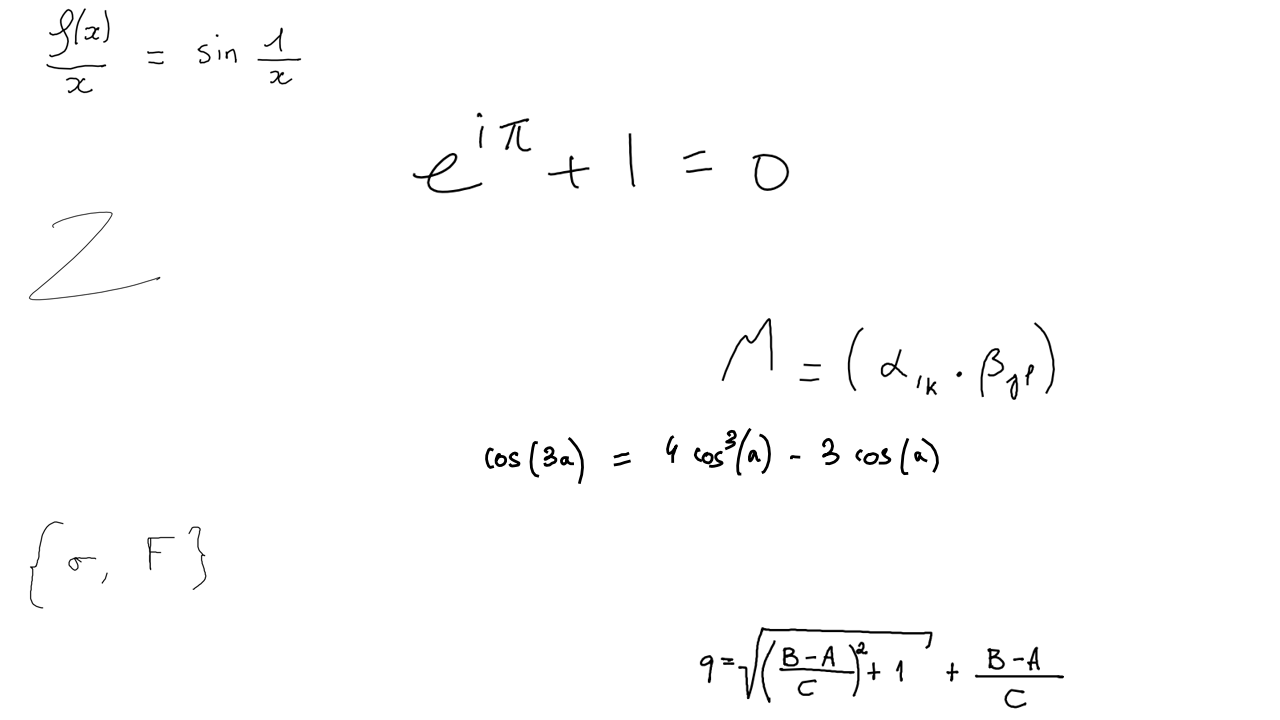 f(x)/x = sin 1/x
e^{iπ} + 1 = 0
Z
M = (α_{ik} · β_{jl})
cos(3a) = 4 cos^3(a) - 3 cos(a)
{σ, F}
q = √(((B-A)/C)^2 + 1) + (B-A)/C